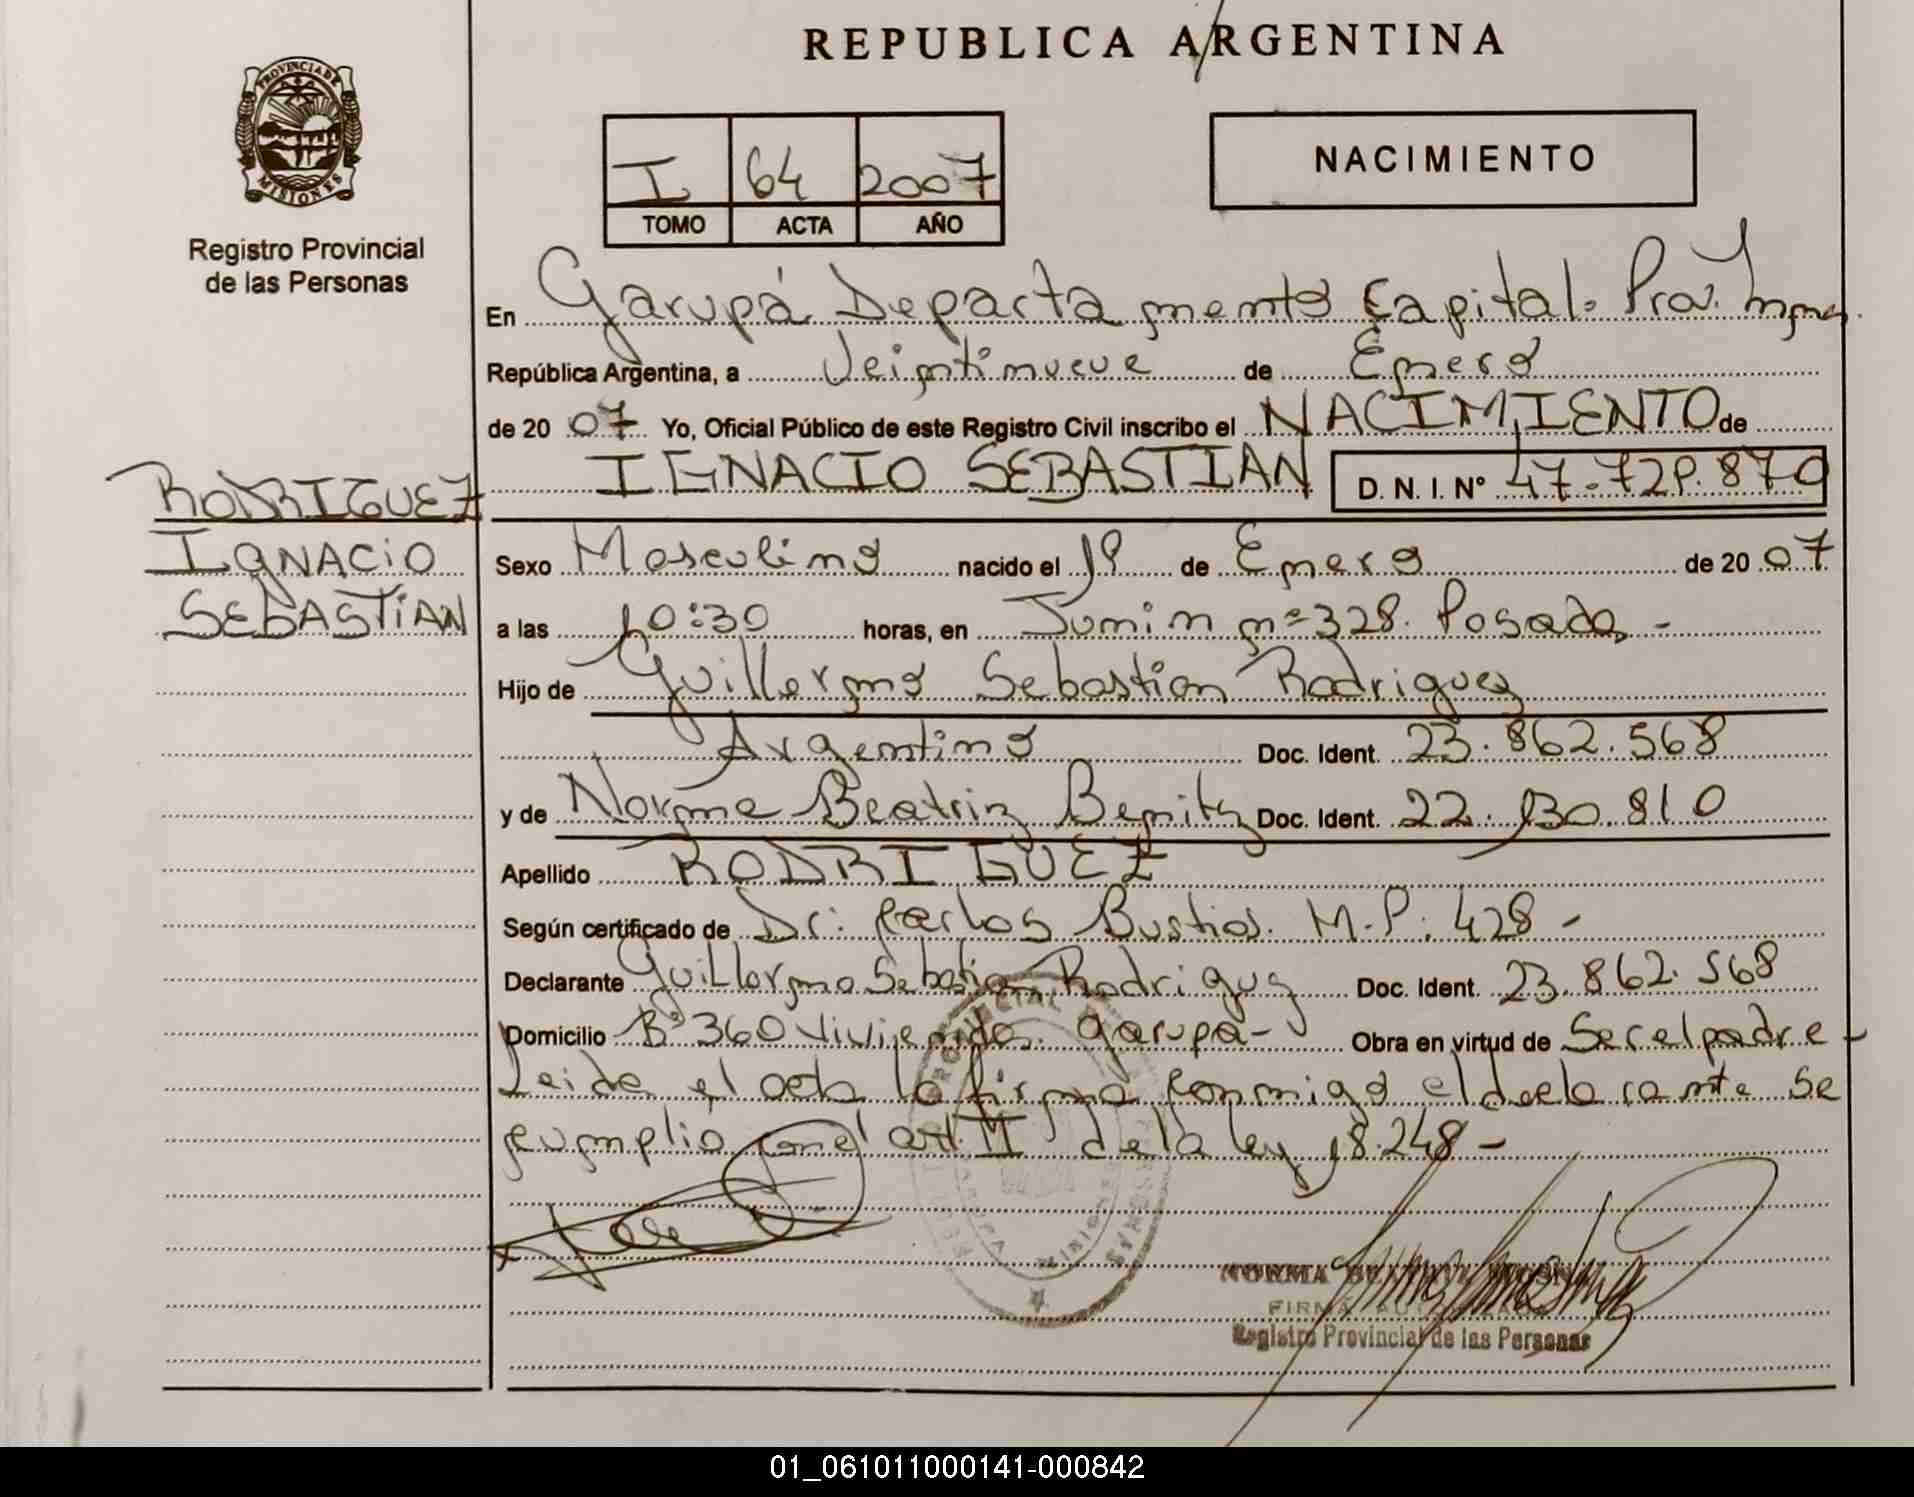 REPUBLICA ARGENTINA
PROVINCIA DE
MISIONES
Registro Provincial
de las Personas
I 64 2007
TOMO ACTA AÑO
NACIMIENTO
En Garupá Departamento Capital. Prov. Mnes.
República Argentina, a Veintinueve de Enero
de 20 07 Yo, Oficial Público de este Registro Civil inscribo el NACIMIENTO de
IGNACIO SEBASTIAN D. N. I. Nº 47.729.870
RODRIGUEZ
IGNACIO
SEBASTIAN
Sexo Masculino nacido el 19 de Enero de 20 07
a las 10:30 horas, en Junin nº 328. Posadas -
Hijo de Guillermo Sebastian Rodriguez
Argentino Doc. Ident. 23.862.568
y de Norma Beatriz Benitez Doc. Ident. 22.130.810
Apellido RODRIGUEZ
Según certificado de Dr: Carlos Bustios. M.P: 428 -
Declarante Guillermo Sebastian Rodriguez Doc. Ident. 23.862.568
Domicilio Bº 360 Viviendas. Garupa - Obra en virtud de Ser el padre -
Leida el acta la firma conmigo el declarante se
cumplio con el art. II de la ley 18.248 -
NORMA
FIRMA AUTORIZADA
Registro Provincial de las Personas
01_061011000141-000842